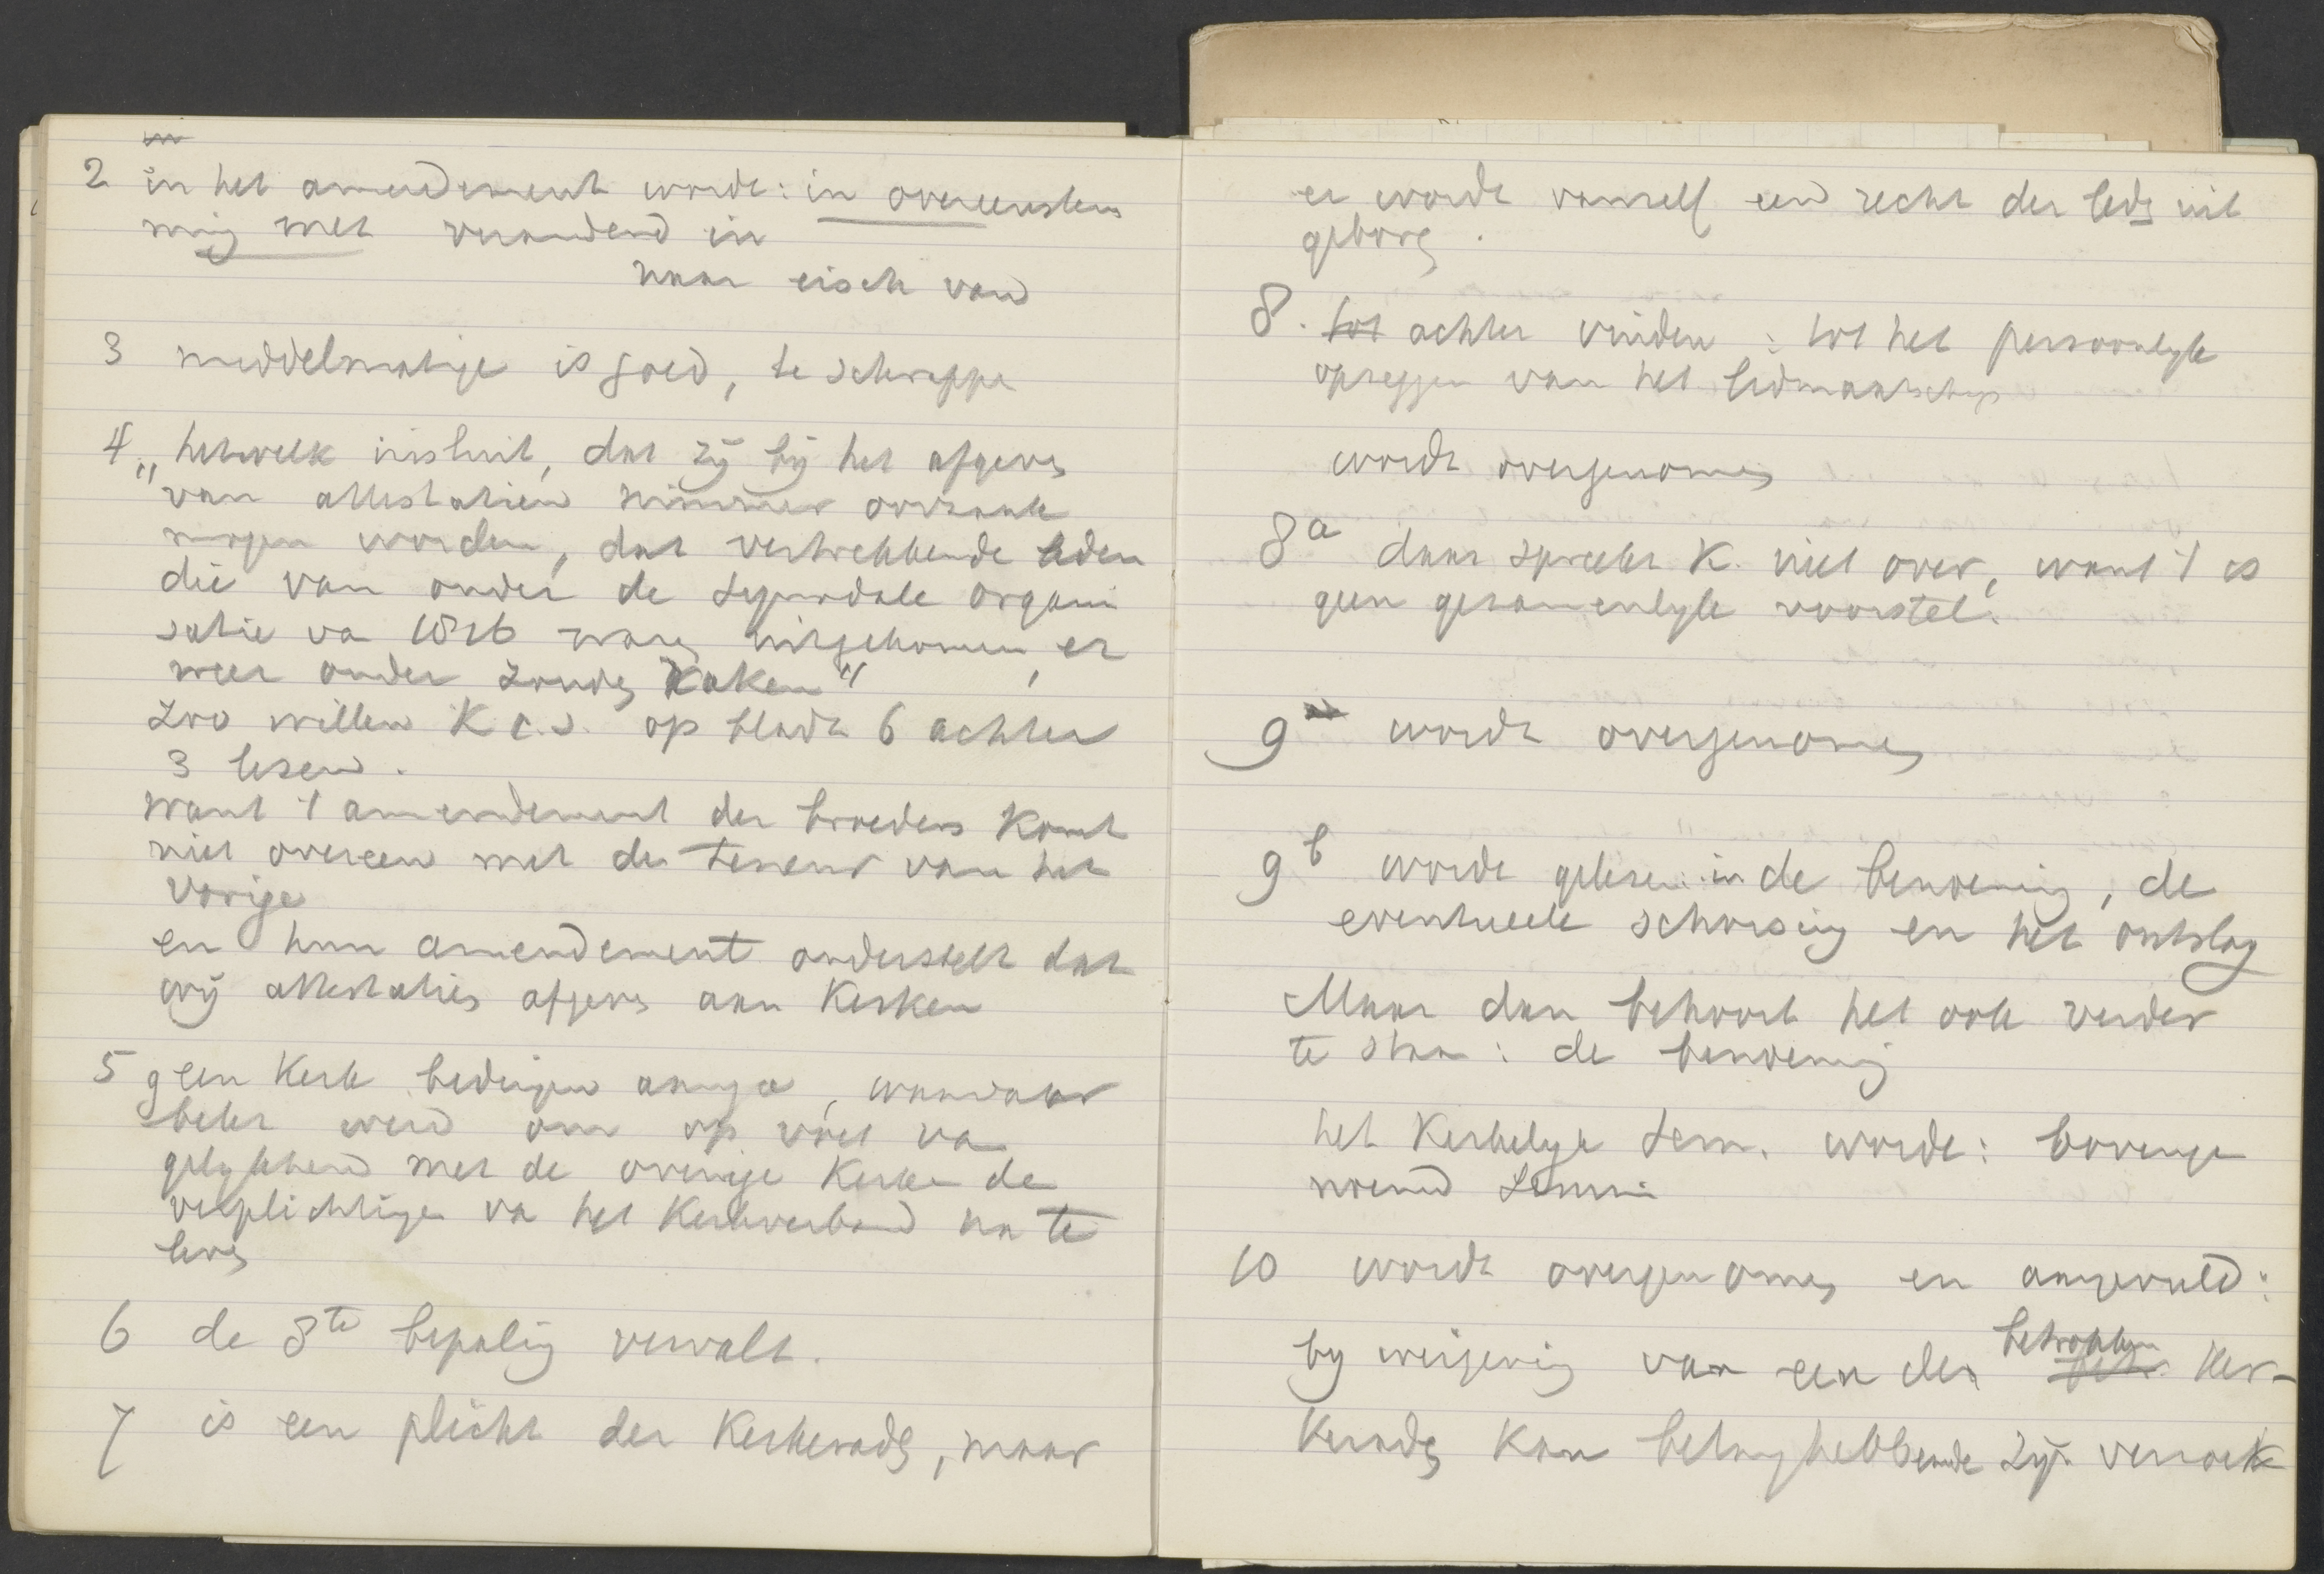 in
2 in het amendement worde: in overeenstem
ming met veranderd in
naar eisch van
3 middelmatige is goed, te schrappe
4 „hetwelk insluit, dat zij bij het afgeven
"van attestatien nimmer oorzaak
mogen worden, dat vertrekkende leden
die van onder de synodale organi
satie va 1816 waren uitgekomen, er
weer onder zouden raken"
Zoo willen K c.s. op bladz 6 achter
3 lezen.
want 't amendement der broeders komt
niet overeen met de teneur van het
vorige
en hun amendement onderstelt dat
wij attestaties afgeven aan Kerken
5 geen Kerk bedingen aanga, waardoor
belet werd om op voet va
gelijkheid met de overige Kerken de
verplichtingen va het Kerkverband na te
leven
6 de 8ste bepaling vervalt.
7 is een plicht der Kerkeraden, maar
er wordt vanzelf een recht der leden uit
geboren.
8. tot achter vinden: tot het persoonlijk
opzeggen van het lidmaatschap
wordt overgenomen
8a daar spreekt K. niet over, want 't is
geen gezamenlijk voorstel.
9 wordt overgenomen
9b worde gelezen: in de benoeming, de
eventueele schorsing en het ontslag
Maar dan behoort het ook verder
te staan: de benoeming
het Kerkelijk sem. worde: bovenge
noemd
10 wordt overgenomen en aangevuld:
by weigering van een der betrokken Ker-
keraden kan belanghebbende zijn verzoek